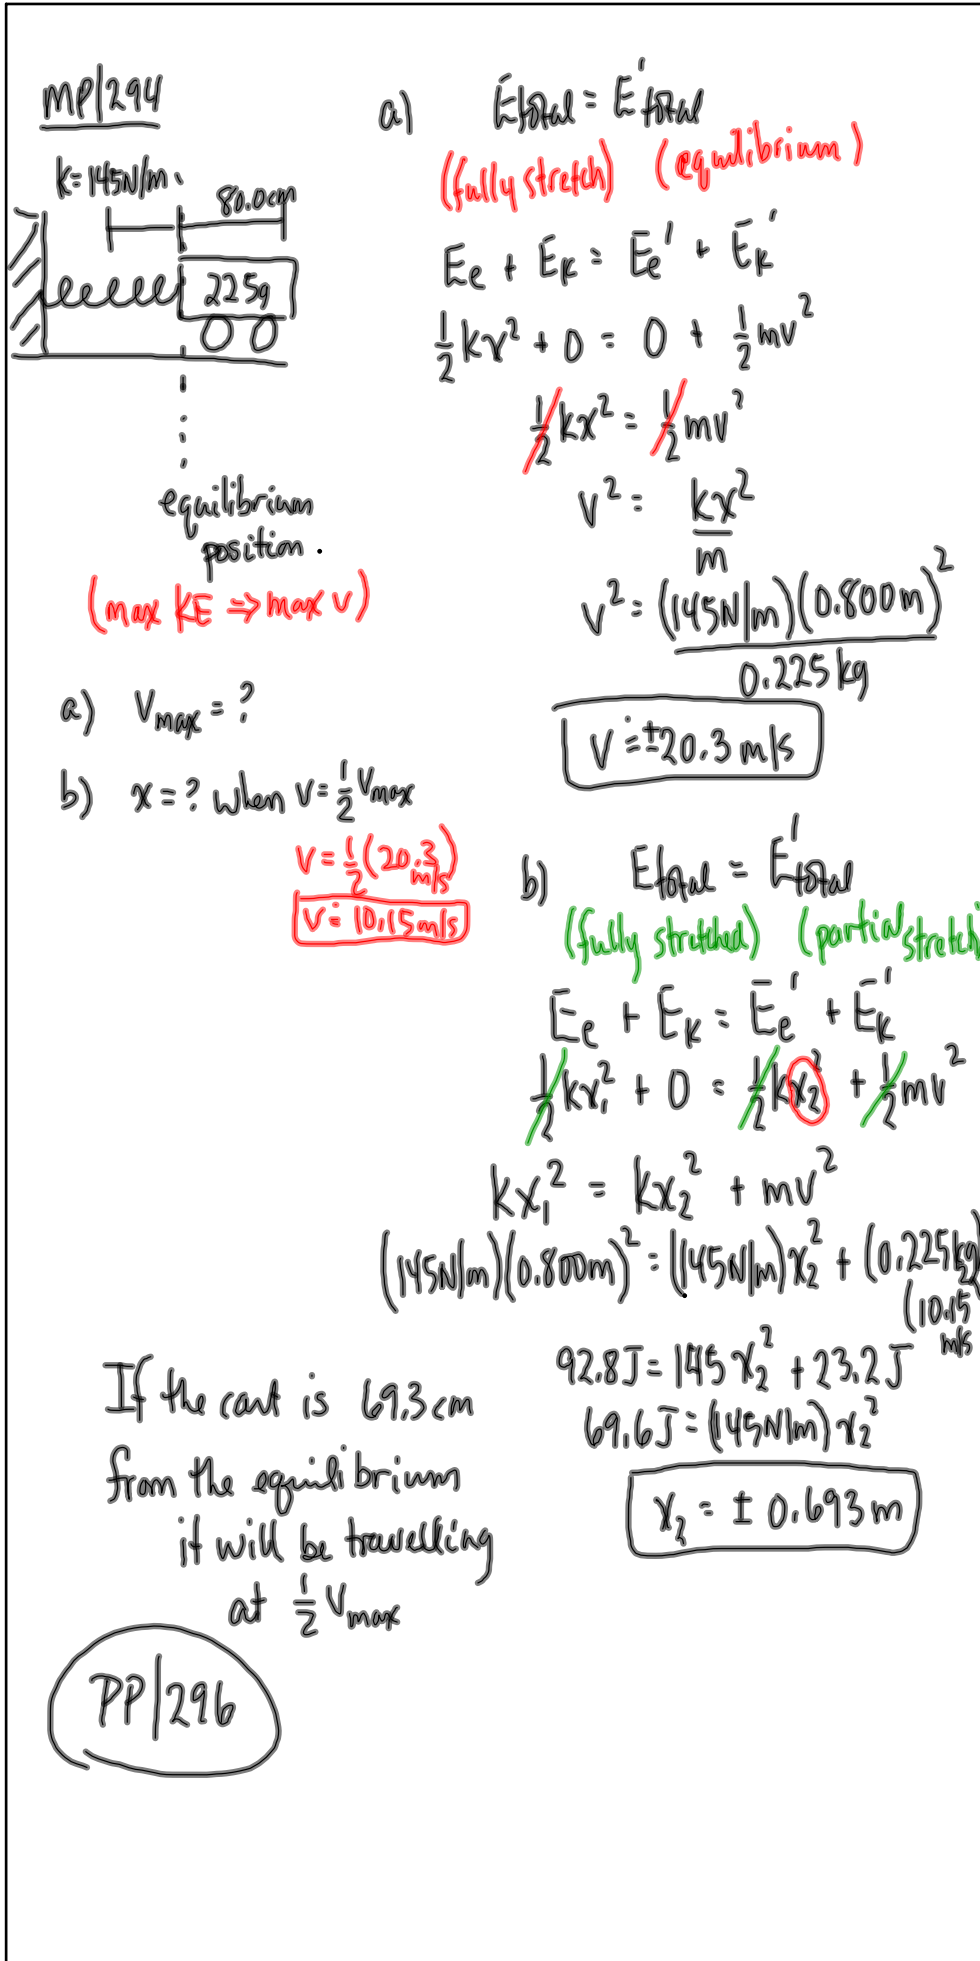 MP/294
k=145N/m
80.0cm
225g
equilibrium
position.
(max KE ⇒ max v)
a) Vmax = ?
b) x = ? when v = ½ Vmax
v = ½ (20.3 m/s)
v = 10.15 m/s
a) Etotal = E'total
(fully stretch) (equilibrium)
Ee + Ek = Ee' + Ek'
½kx² + 0 = 0 + ½mv²
½kx² = ½mv²
v² = kx²/m
v² = (145N/m)(0.800m)²
0.225kg
v = ±20.3 m/s
b) Etotal = E'total
(fully stretched) (partial stretch)
Ee + Ek = Ee' + Ek'
½kx₁² + 0 = ½kx₂² + ½mv²
kx₁² = kx₂² + mv²
(145N/m)(0.800m)² = (145N/m)x₂² + (0.225kg)
(10.15 m/s)²
92.8J = 145x₂² + 23.2J
69.6J = (145N/m)x₂²
x₂ = ± 0.693m
If the cart is 69.3cm
from the equilibrium
it will be travelling
at ½ Vmax
PP/296